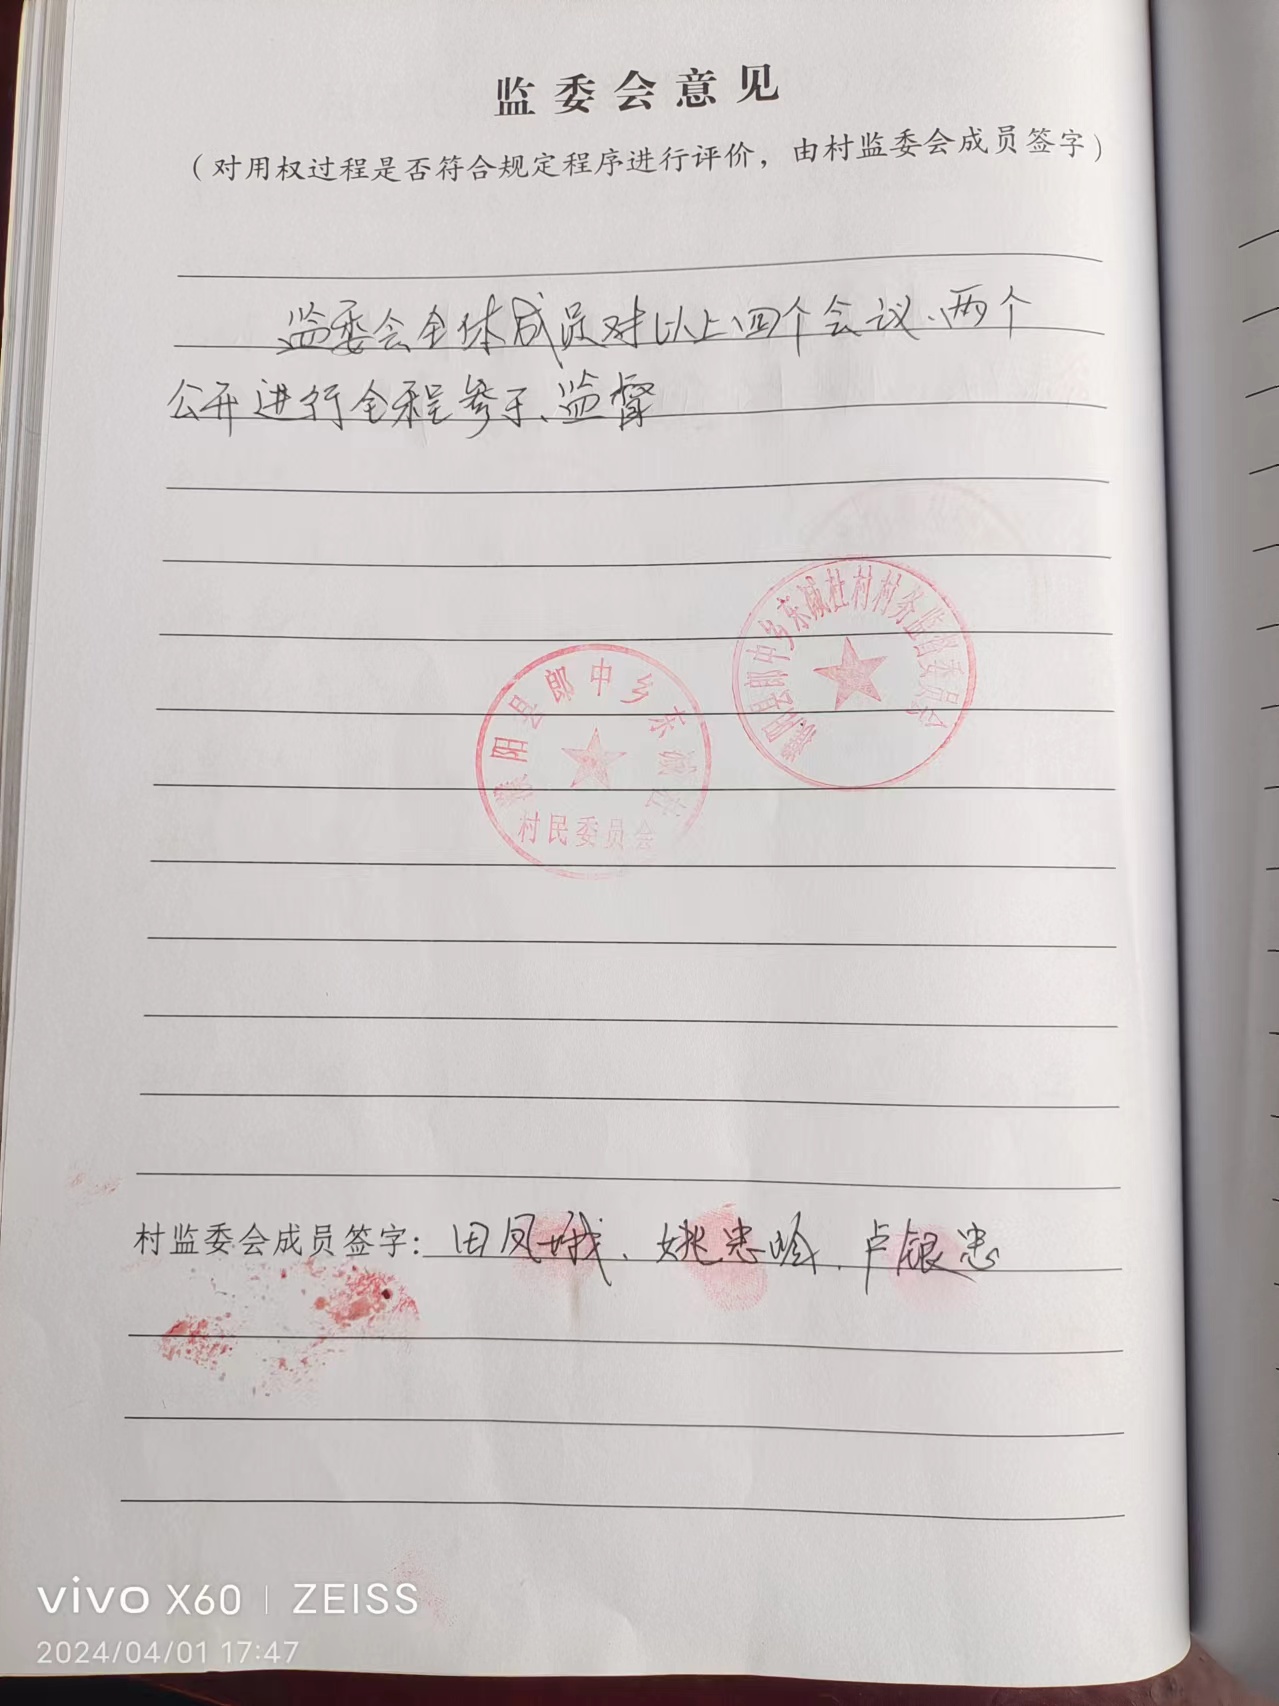 监委会意见
（对用权过程是否符合规定程序进行评价，由村监委会成员签字）
监委会全体成员对以上四个会议、两个
公开进行全程参于、监督
濮阳县郎中乡东溅杜村村务监督委员会
濮阳县郎中乡东溅杜
村民委员会
村监委会成员签字：田凤娥、姚忠岭、卢银忠
vivo X60 | ZEISS
2024/04/01 17:47